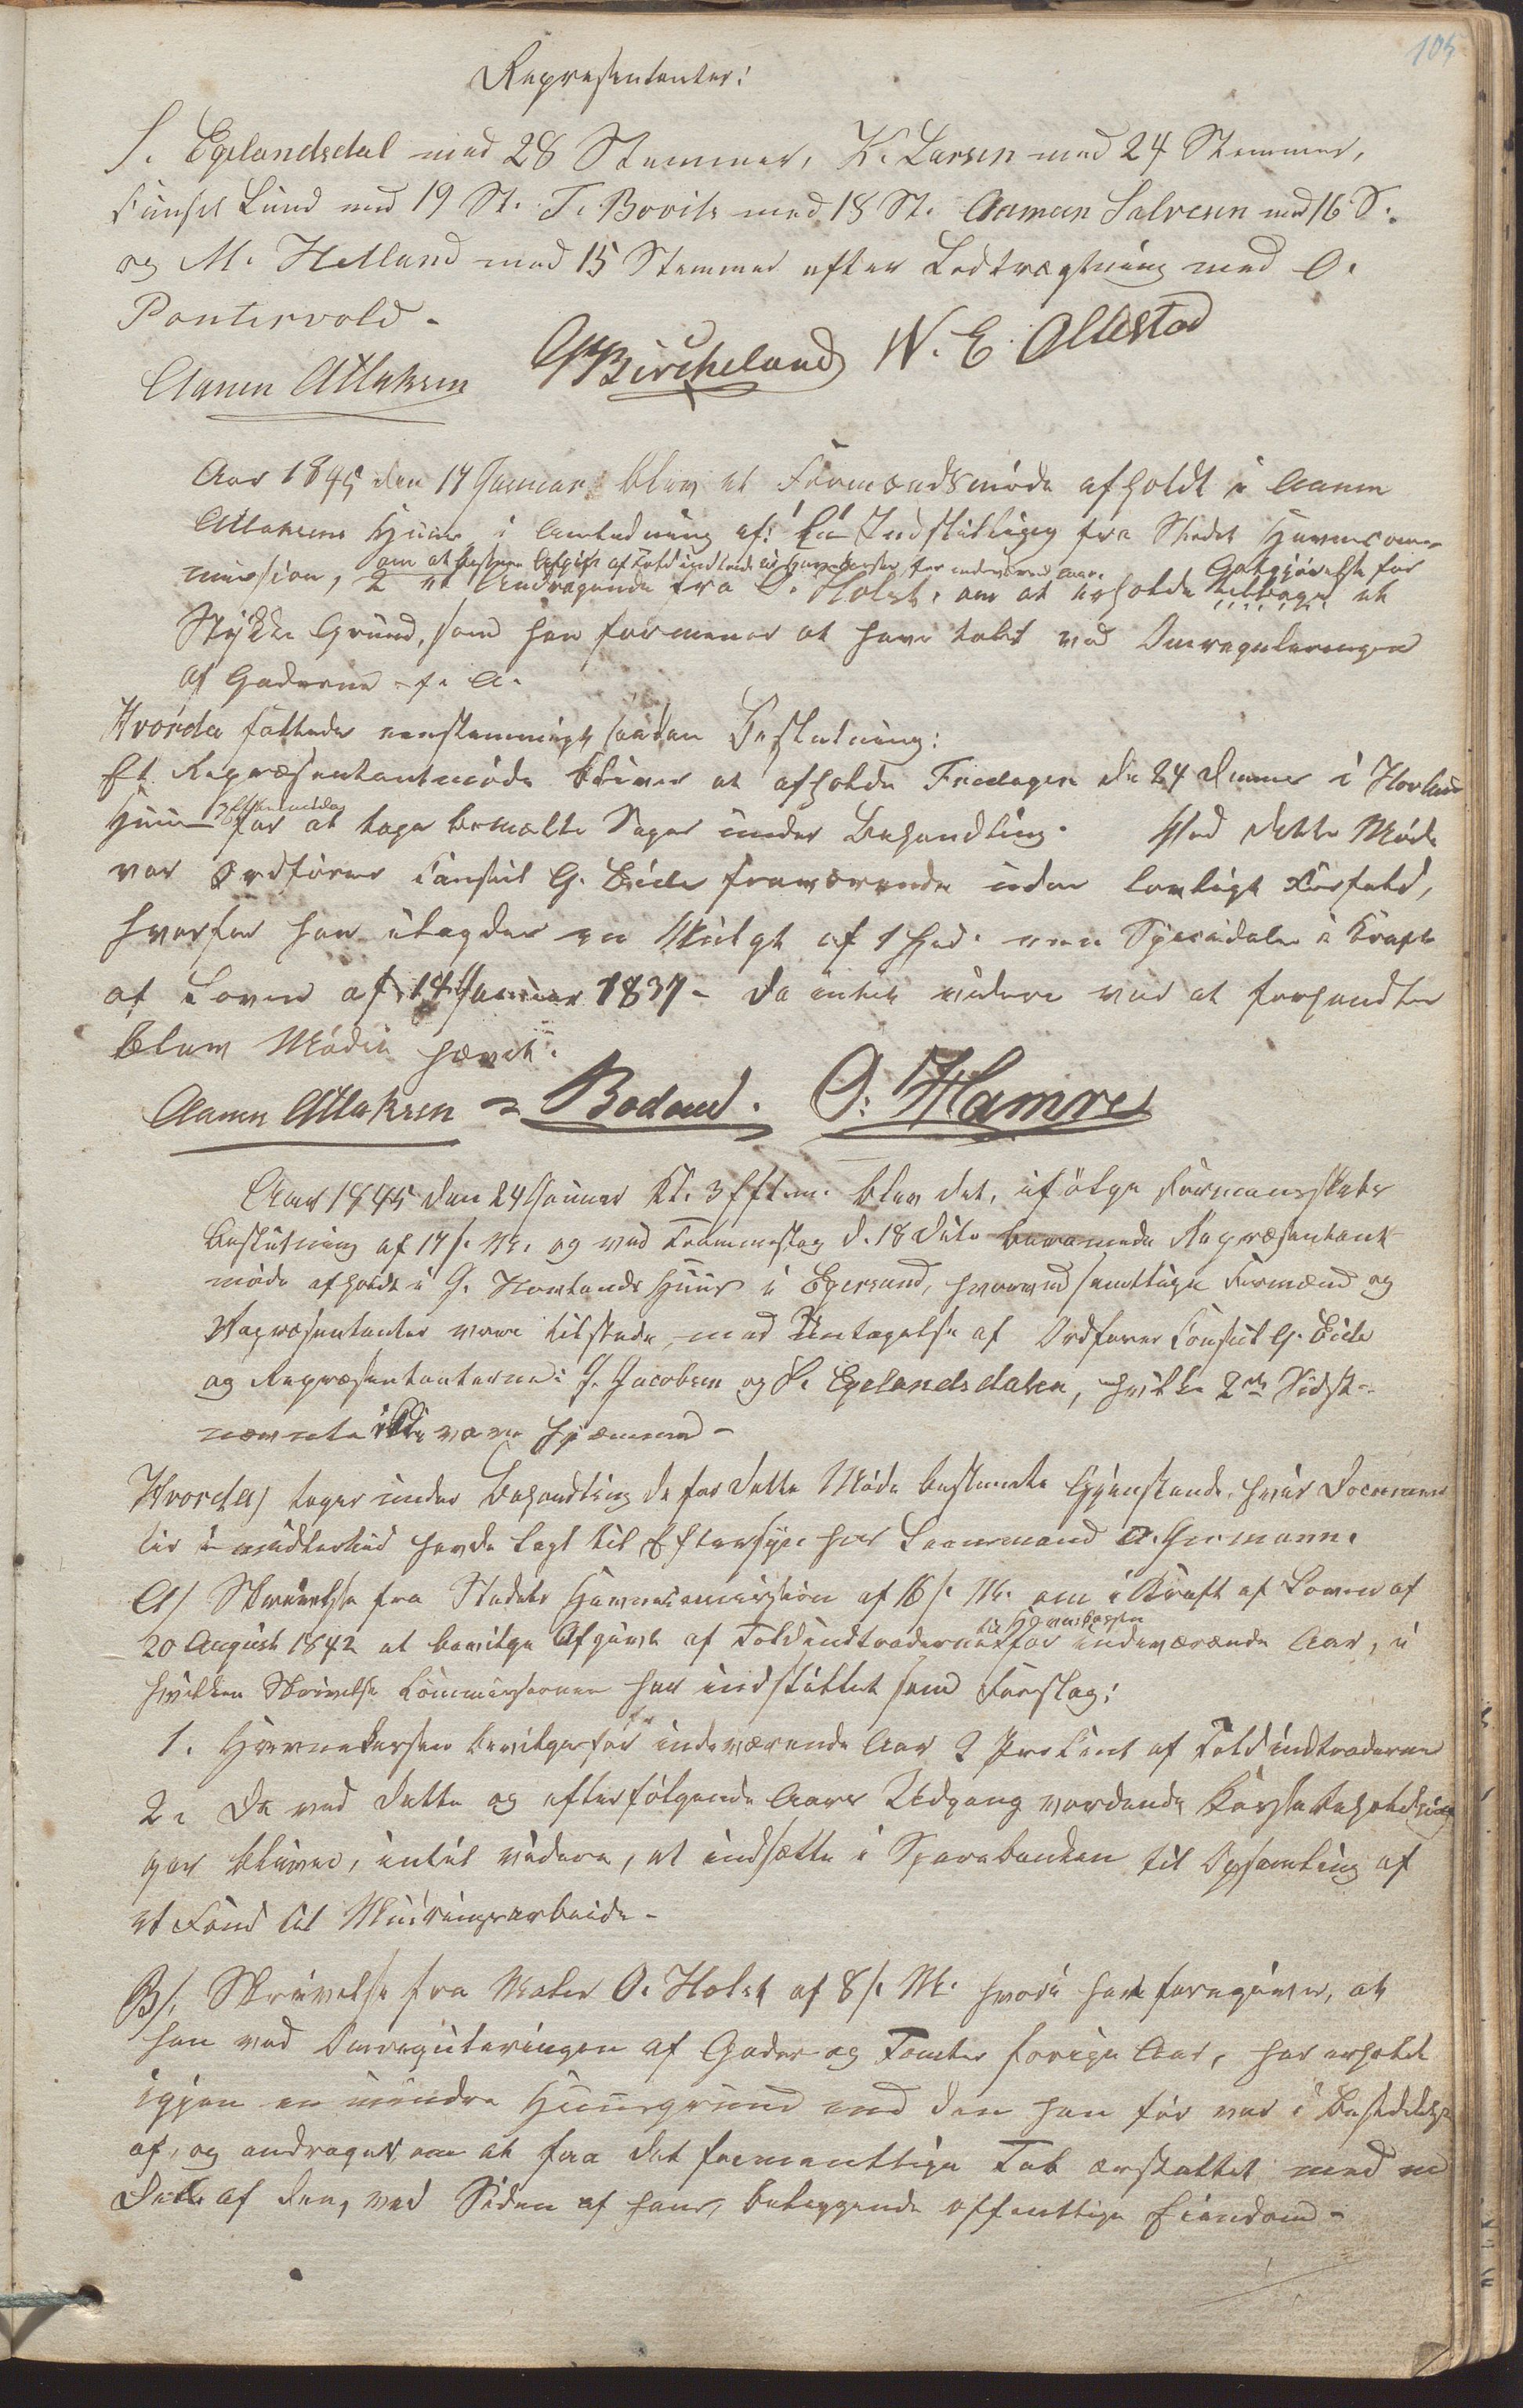 105
Repræsentanter:
S. Egelandsdal med 28 Stemmer, K. Larsen med 24 Stemmer,
Consul Lund med 19 St. T. Bovits med 18 St. Aaman Salvesen med 16 S.
og M. Hetland med 15 Stemmer efter Lodtrækning med O.
Pontervold.
Aanen Atlaksen GBircheland N. E. Ollestad
Aar 1845 den 17 Januar blev et Formændsmöde afholdt i Aanen
Atlaksens Huus i Anledning af: 1 En Indstilling fra Stedets Havnecom-
om at bestemme Afgivt af Toldindtrade til Havnekassen for indeværende Aar.
mission, 2 et Andragende fra O. Holst, om at erholde Godtgjörelse for tilbage et
Stykke Grund, som han formener at have tabt ved Omreguleringen
af Gaderne f. A.
Hvorda fattedes eenstemmigt saadan Beslutning:
Et Repræsentantmöde bliver at afholde Fredagen den 24 dennes i Hovlands
Huus Eftermiddag for at tage bemælte Sager under Behandling. Ved dette Möde
var Ordförer Consul G. Eide fraværende uden lovligt Forfald,
hvorfor han ilagdes en Mulgt af 1 Spd. een Speciedaler i Kraft
af Loven af 14 Januar 1837 - Da intet videre var at forhandle
blev Mödet hævet.
Aanen Atlaksen Bodom. O. Hamre
Aar 1845 den 24 Januar Kl. 3 Efterm. blev det, ifölge Formandskabets
Beslutning af 17 s. M. og ved Trommeslag d. 18 dito berammede Repræsentant-
möde afholdt i J. Hovlands Huus i Egersund, hvorved samtlige Formænd og
Repræsentanter vare tilstede, med Undtagelse af Ordförer Consul G. Eide
og Repræsentanterne: J. Jacobsen og S. Egelandsdalen, hvilke 2de Sidst-
nævnte ikke vare hjemme -
Hvorda) toges under Behandling de for dette Möde bestemte Gjenstande, hvis Documen-
ter i midlertid havde lagt til Eftersyn hos Leensmand A. Hermann.
A/ Skrivelse fra Stedets Havnecommission af 16 s. M. om i Kraft af Loven af
20 August 1842 at bevilge Afgivt af Toldindtraderne til Havnekassen for indeværende Aar, i
hvilken Skrivelse Commissionen har indstillet som Forslag:
1. Havnekassen bevilges for indeværende Aar 2 Procent af Toldindtraderne
2. De ved dette og efterfölgende Aars Udgang vordende Kassebeholdnin-
ger bliver, intil videre, at indsætte i Sparebanken til Opsamling af
et Fond til Muringsarbeide -
B/. Skrivelse fra Maler O. Holst af 8 s. M. hvori han foregiver, at
han ved Omreguleringen af Gader og Tomter forige Aar, har erholdt
igjen en mindre Huusgrund end den han för var i Besiddelse
af, og andrager om at faa det formentlige Tab erstattet med en
Deel af den, ved Siden af hans, beliggende offentlige Eiendom -